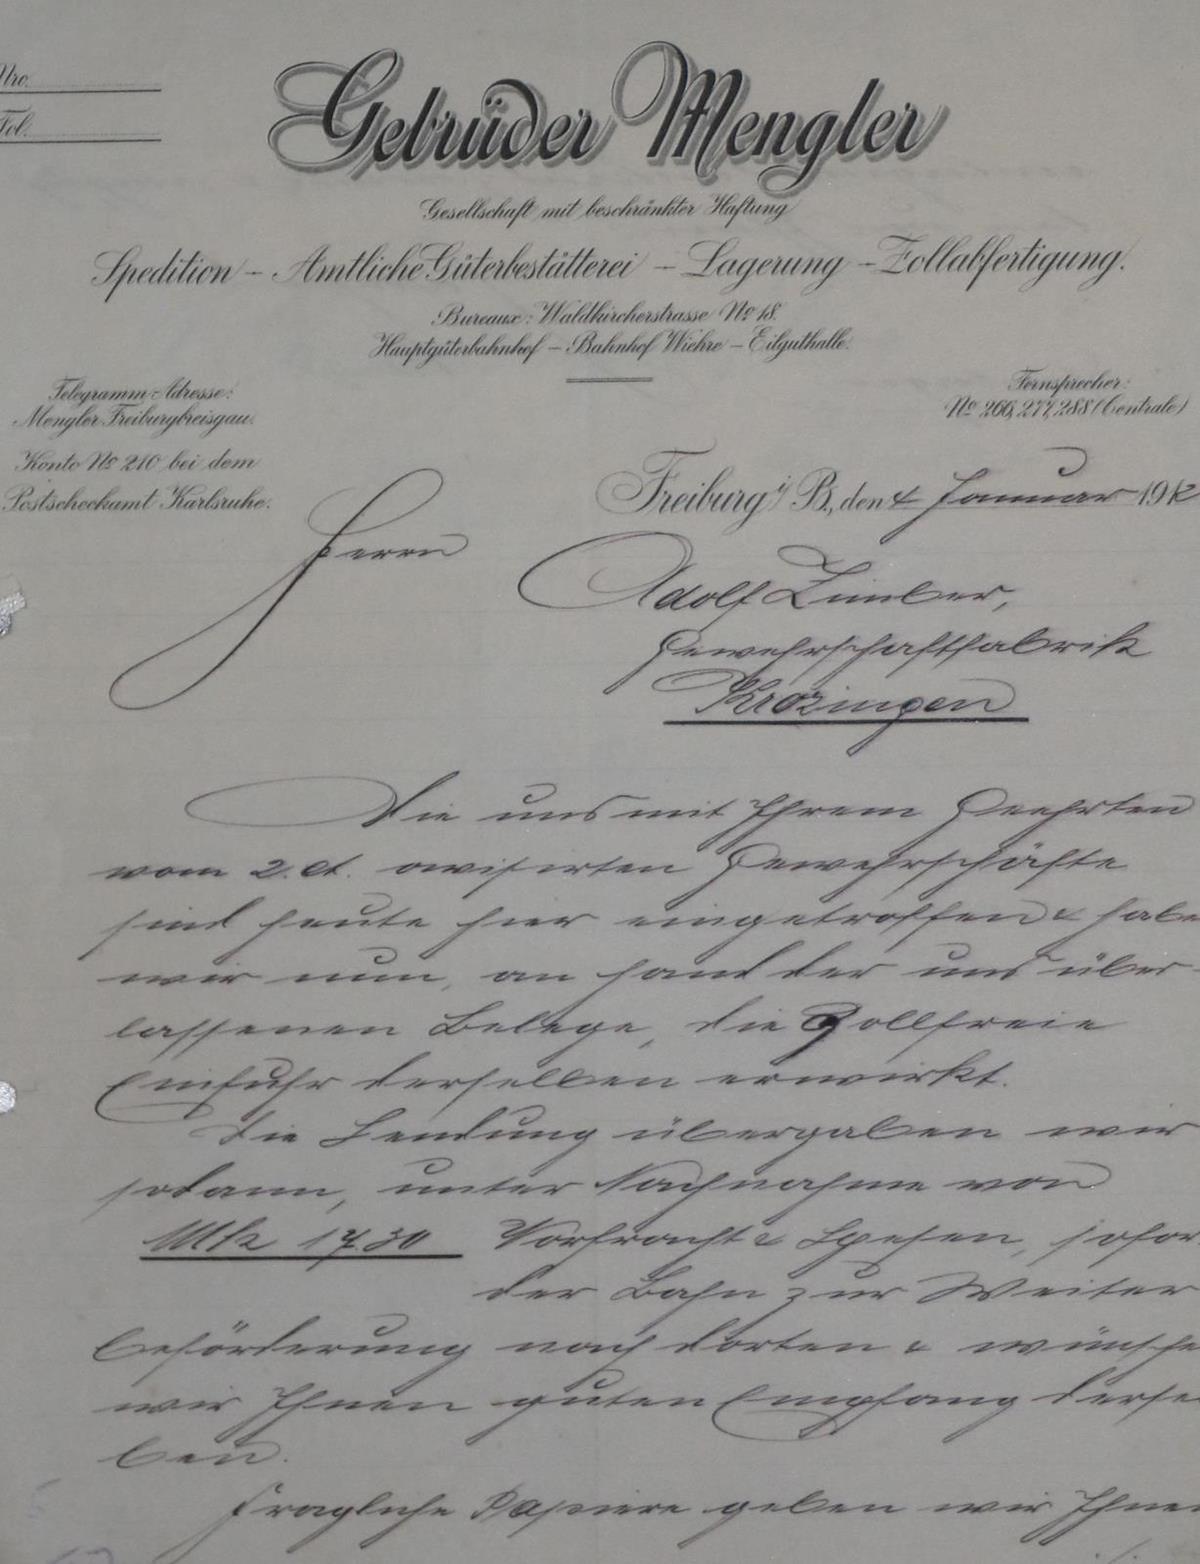 Nro.
Fol.
Gebrüder Mengler
Gesellschaft mit beschränkter Haftung
Spedition – Amtliche Güterbestätterei – Lagerung – Zollabfertigung.
Bureaux: Waldkircherstrasse No 18.
Hauptgüterbahnhof – Bahnhof Wiehre – Eilguthalle.
Telegramm-Adresse:
Mengler Freiburgbreisgau.
Fernsprecher:
No 266, 277, 288 (Centrale)
Konto No 210 bei dem
Postscheckamt Karlsruhe.
Freiburg i/B., den 4 Januar 1912
Herrn
Adolf Zimber,
Gewehrschaftfabrik
Krozingen
Die uns mit Ihrem Geehrten
vom 2. ct. avisirten Gewehrschäfte
sind heute hier eingetroffen & habe
wir nun, an Hand der uns über-
lassenen Belege, die Zollfreie
Einfuhr derselben erwirkt.
Die Sendung übergaben wir
sodann, unter Nachnahme von
Mk 17.30 Vorfracht & Spesen, sofor
der Bahn zur Weiter
beförderung nach dorten & wünsche
wir Ihnen guten Empfang derse
ben.
Fragliche Papiere geben wir Ihnen